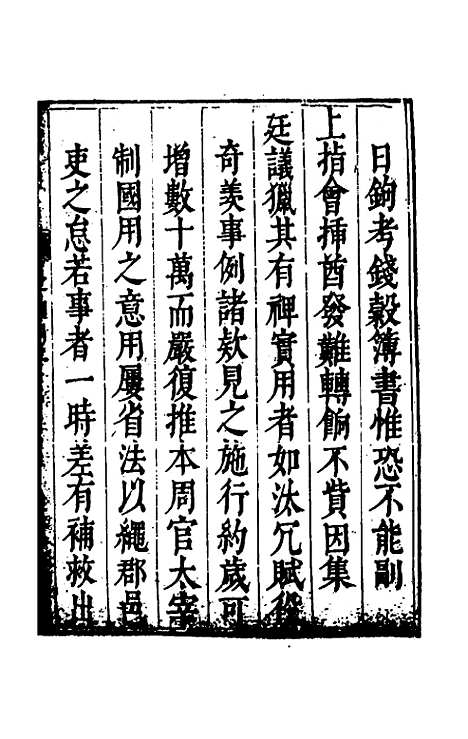 日鉤考錢糓簿書惟恐不能副
上指會揷酋發難轉餉不貲因集
廷議獵其有裨實用者如汰冗賦役
奇羨事例諸欵見之施行約歲可
增數十萬而嚴復推本周官太宰
制國用之意用屢省法以繩郡邑
吏之怠若事者一時差有補救出